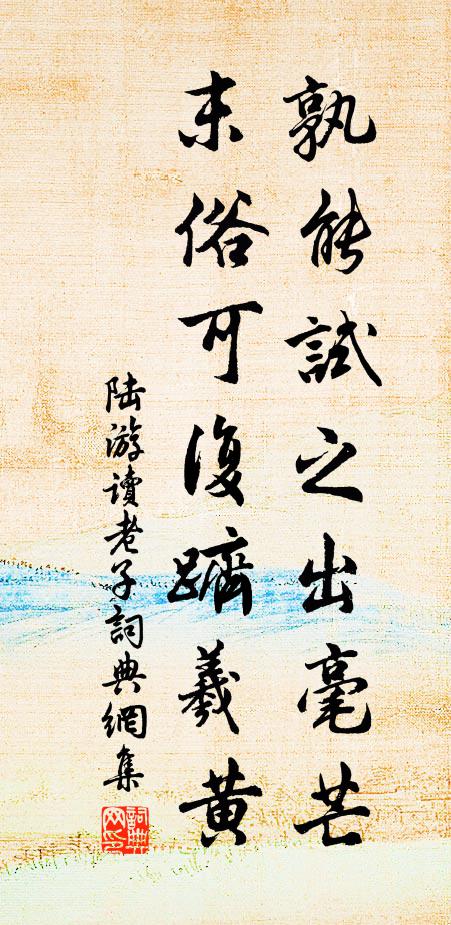 孰能試之出毫芒
末俗可復躋羲黄
陆游讀老子詞典網集
詞典网印